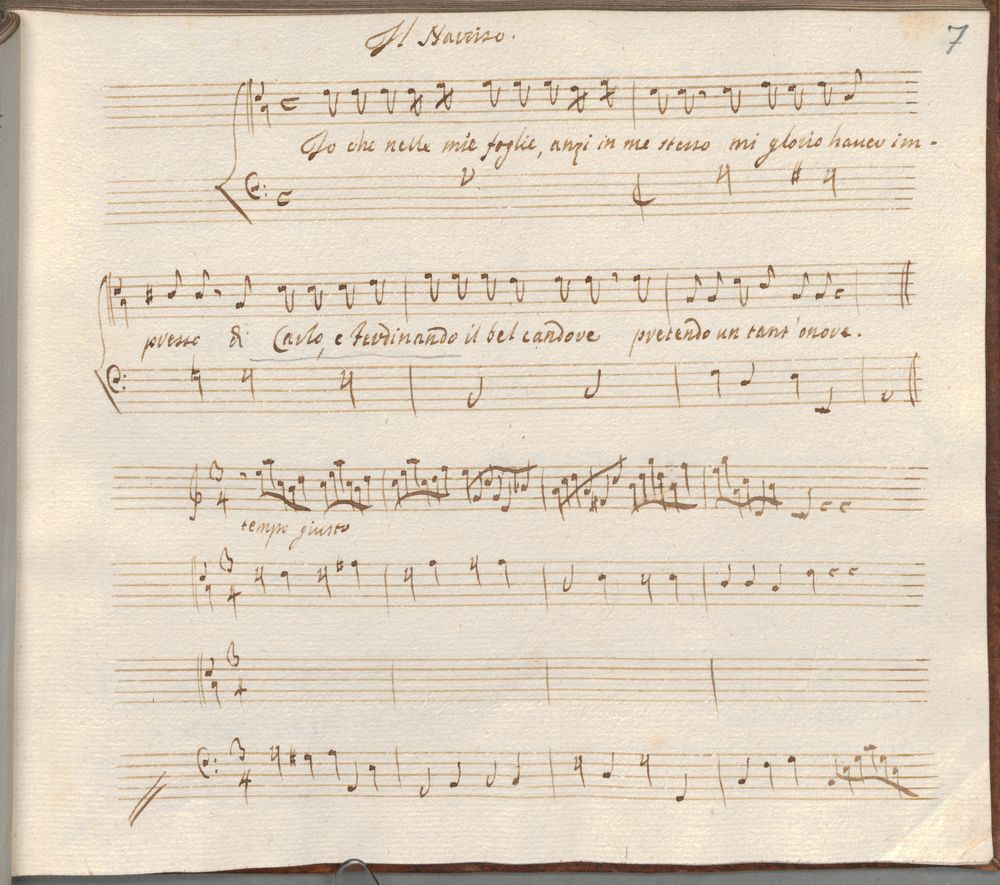 Il Narciso.
7
Io che nelle mie foglie, anzi in me stesso mi glorio haver im-
presso di Carlo, e Ferdinando il bel candore pretendo un tant'onore.
3
4
tempo giusto
3
4
3
4
3
4